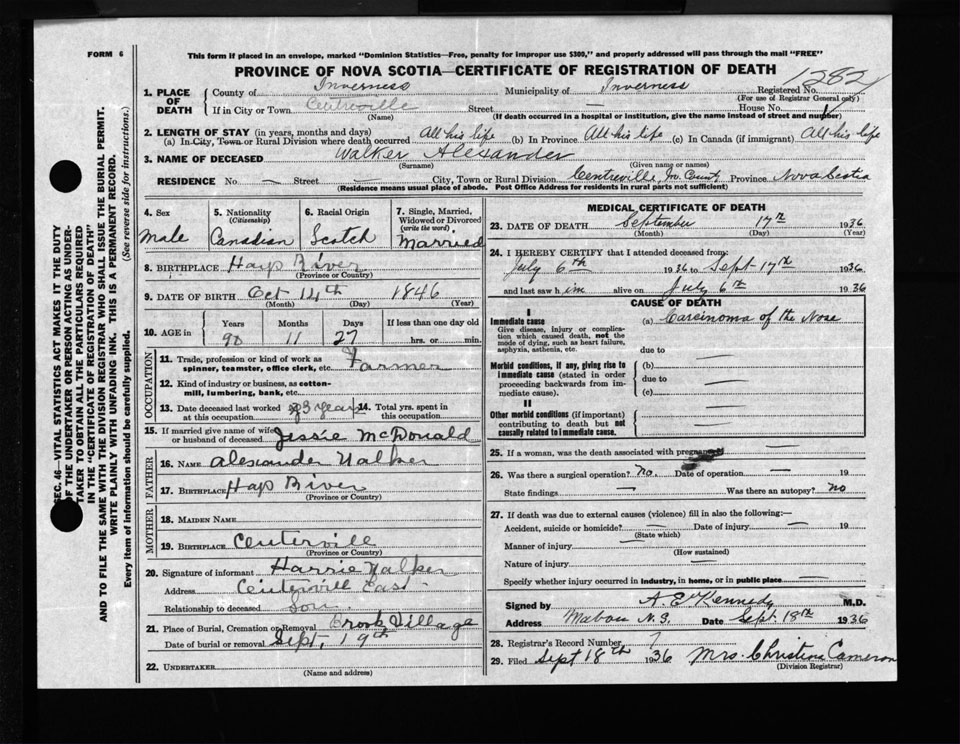 FORM 6
This form if placed in an envelope, marked "Dominion Statistics—Free, penalty for improper use $300," and properly addressed will pass through the mail "FREE"
PROVINCE OF NOVA SCOTIA—CERTIFICATE OF REGISTRATION OF DEATH
1282
1. PLACE OF DEATH County of Inverness Municipality of Inverness Registered No.
(For use of Registrar General only)
If in City or Town Centreville Street — House No.
(Name) (If death occurred in a hospital or institution, give the name instead of street and number)
2. LENGTH OF STAY (in years, months and days)
(a) In City, Town or Rural Division where death occurred All his life (b) In Province All his life (c) In Canada (if immigrant) All his life
3. NAME OF DECEASED Walker Alexander
(Surname) (Given name or names)
RESIDENCE No. — Street — City, Town or Rural Division Centreville, In. County Province Nova Scotia
(Residence means usual place of abode. Post Office Address for residents in rural parts not sufficient)
SEC. 46—VITAL STATISTICS ACT MAKES IT THE DUTY
OF THE UNDERTAKER OR PERSON ACTING AS UNDER-
TAKER TO OBTAIN ALL THE PARTICULARS REQUIRED
IN THE "CERTIFICATE OF REGISTRATION OF DEATH"
AND TO FILE THE SAME WITH THE DIVISION REGISTRAR WHO SHALL ISSUE THE BURIAL PERMIT.
WRITE PLAINLY WITH UNFADING INK. THIS IS A PERMANENT RECORD.
Every item of information should be carefully supplied. (See reverse side for instructions.)
4. Sex
Male
5. Nationality
(Citizenship)
Canadian
6. Racial Origin
Scotch
7. Single, Married,
Widowed or Divorced
(write the word)
Married
8. BIRTHPLACE Hays River
(Province or Country)
9. DATE OF BIRTH Oct 14th 1846
(Month) (Day) (Year)
10. AGE in Years Months Days If less than one day old
90 11 27 hrs. or min.
OCCUPATION
11. Trade, profession or kind of work as
spinner, teamster, office clerk, etc. Farmer
12. Kind of industry or business, as cotton-
mill, lumbering, bank, etc.
13. Date deceased last worked
at this occupation 3 years
14. Total yrs. spent in
this occupation
15. If married give name of wife
or husband of deceased Jessie McDonald
FATHER
16. NAME Alexander Walker
17. BIRTHPLACE Hays River
(Province or Country)
MOTHER
18. MAIDEN NAME
19. BIRTHPLACE Centervill
(Province or Country)
20. Signature of informant Harrie Walker
Address Centervill East
Relationship to deceased Son
21. Place of Burial, Cremation or Removal Brook Village
Date of burial or removal Sept, 19th
22. UNDERTAKER
(Name and address)
MEDICAL CERTIFICATE OF DEATH
23. DATE OF DEATH September 17th 1936
(Month) (Day) (Year)
24. I HEREBY CERTIFY that I attended deceased from:
July 6th 1936 to Sept 17th 1936
and last saw him alive on July 6th 1936
CAUSE OF DEATH
I
Immediate cause
Give disease, injury or complica-
tion which caused death, not the
mode of dying, such as heart failure,
asphyxia, asthenia, etc.
(a) Carcinoma of the Nose
due to —
Morbid conditions, if any, giving rise to
immediate cause (stated in order
proceeding backwards from im-
mediate cause).
(b) —
due to —
(c) —
II
Other morbid conditions (if important)
contributing to death but not
causally related to immediate cause.
25. If a woman, was the death associated with pregnancy? —
26. Was there a surgical operation? No. Date of operation — 19
State findings — Was there an autopsy? No
27. If death was due to external causes (violence) fill in also the following:—
Accident, suicide or homicide? — Date of injury — 19
(State which)
Manner of injury —
(How sustained)
Nature of injury —
Specify whether injury occurred in industry, in home, or in public place —
Signed by A E Kennedy M.D.
Address Mabou N.S. Date Sept. 18th 1936
28. Registrar's Record Number 7
29. Filed Sept 18th 1936 Mrs. Christina Cameron
(Division Registrar)